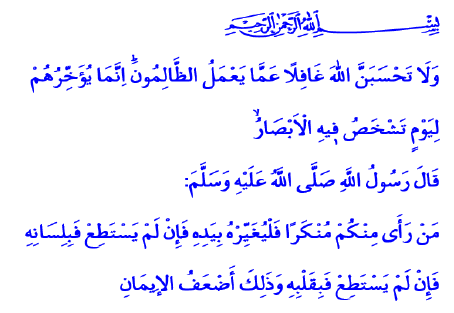 بِسْمِ اللّٰهِ الرَّحْمٰنِ الرَّحِيمِ
وَلَا تَحْسَبَنَّ اللّٰهَ غَافِلًا عَمَّا يَعْمَلُ الظَّالِمُونَۜ اِنَّمَا يُؤَخِّرُهُمْ
لِيَوْمٍ تَشْخَصُ ف۪يهِ الْاَبْصَارُۙ
قَالَ رَسُولُ اللَّهِ صَلَّى اللَّهُ عَلَيْهِ وَسَلَّمَ:
مَنْ رَأَى مِنْكُمْ مُنْكَرًا فَلْيُغَيِّرْهُ بِيَدِهِ فَإِنْ لَمْ يَسْتَطِعْ فَبِلِسَانِهِ
فَإِنْ لَمْ يَسْتَطِعْ فَبِقَلْبِهِ وَذَلِكَ أَضْعَفُ الإِيمَانِ